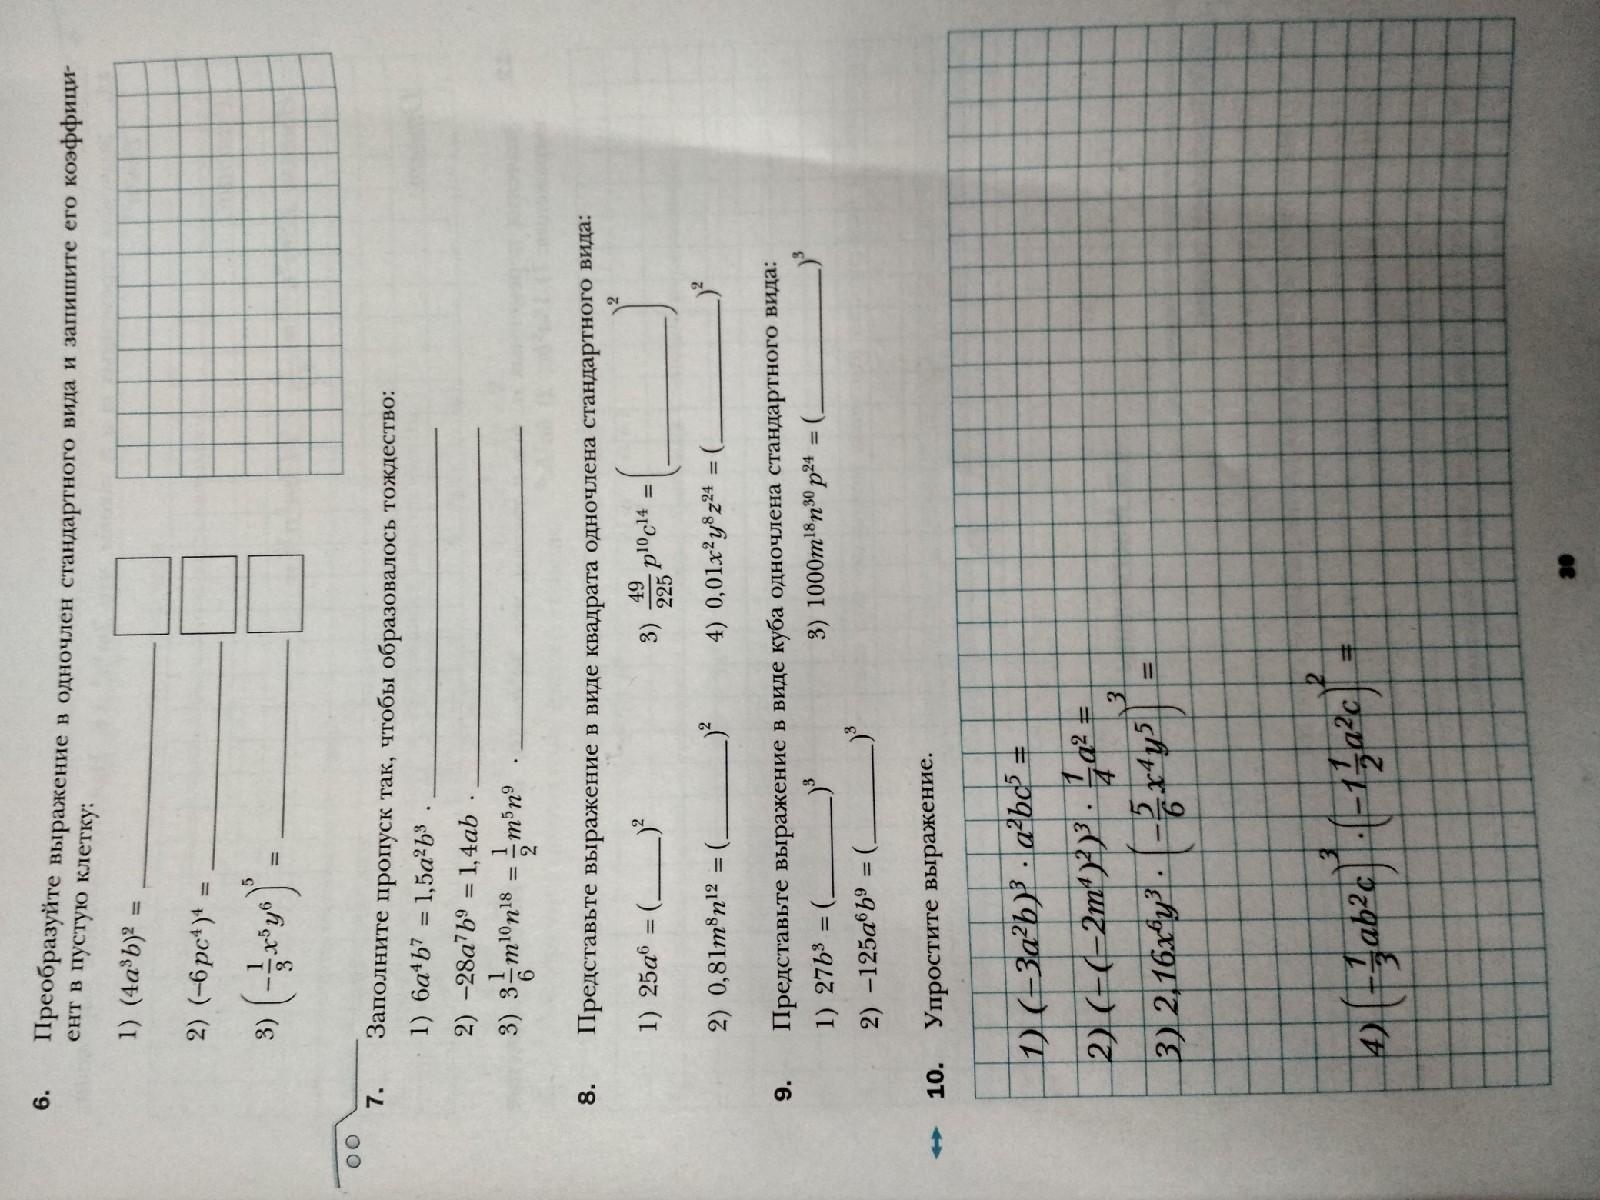 6. Преобразуйте выражение в одночлен стандартного вида и запишите его коэффици-
ент в пустую клетку:
1) (4a³b)² = ____
2) (−6pc⁴)⁴ = ____
3) (−1/3 x⁵y⁶)⁵ = ____
7. Заполните пропуск так, чтобы образовалось тождество:
1) 6a⁴b⁷ = 1,5a²b³ · ____
2) −28a⁷b⁹ = 1,4ab · ____
3) 3 1/6 m¹⁰n¹⁸ = 1/2 m⁵n⁹ · ____
8. Представьте выражение в виде квадрата одночлена стандартного вида:
1) 25a⁶ = (____)²
2) 0,81m⁸n¹² = (____)²
3) 49/225 p¹⁰c¹⁴ = (____)²
4) 0,01x²y⁸z²⁴ = (____)²
9. Представьте выражение в виде куба одночлена стандартного вида:
1) 27b³ = (____)³
2) −125a⁶b⁹ = (____)³
3) 1000m¹⁸n³⁰p²⁴ = (____)³
10. Упростите выражение.
1) (−3a²b)³ · a²bc⁵ =
2) (−(−2m⁴)²)³ · 1/4 a² =
3) 2,16x⁶y³ · (−5/6 x⁴y⁵)³ =
4) (−1/3 ab²c)³ · (−1 1/2 a²c)² =